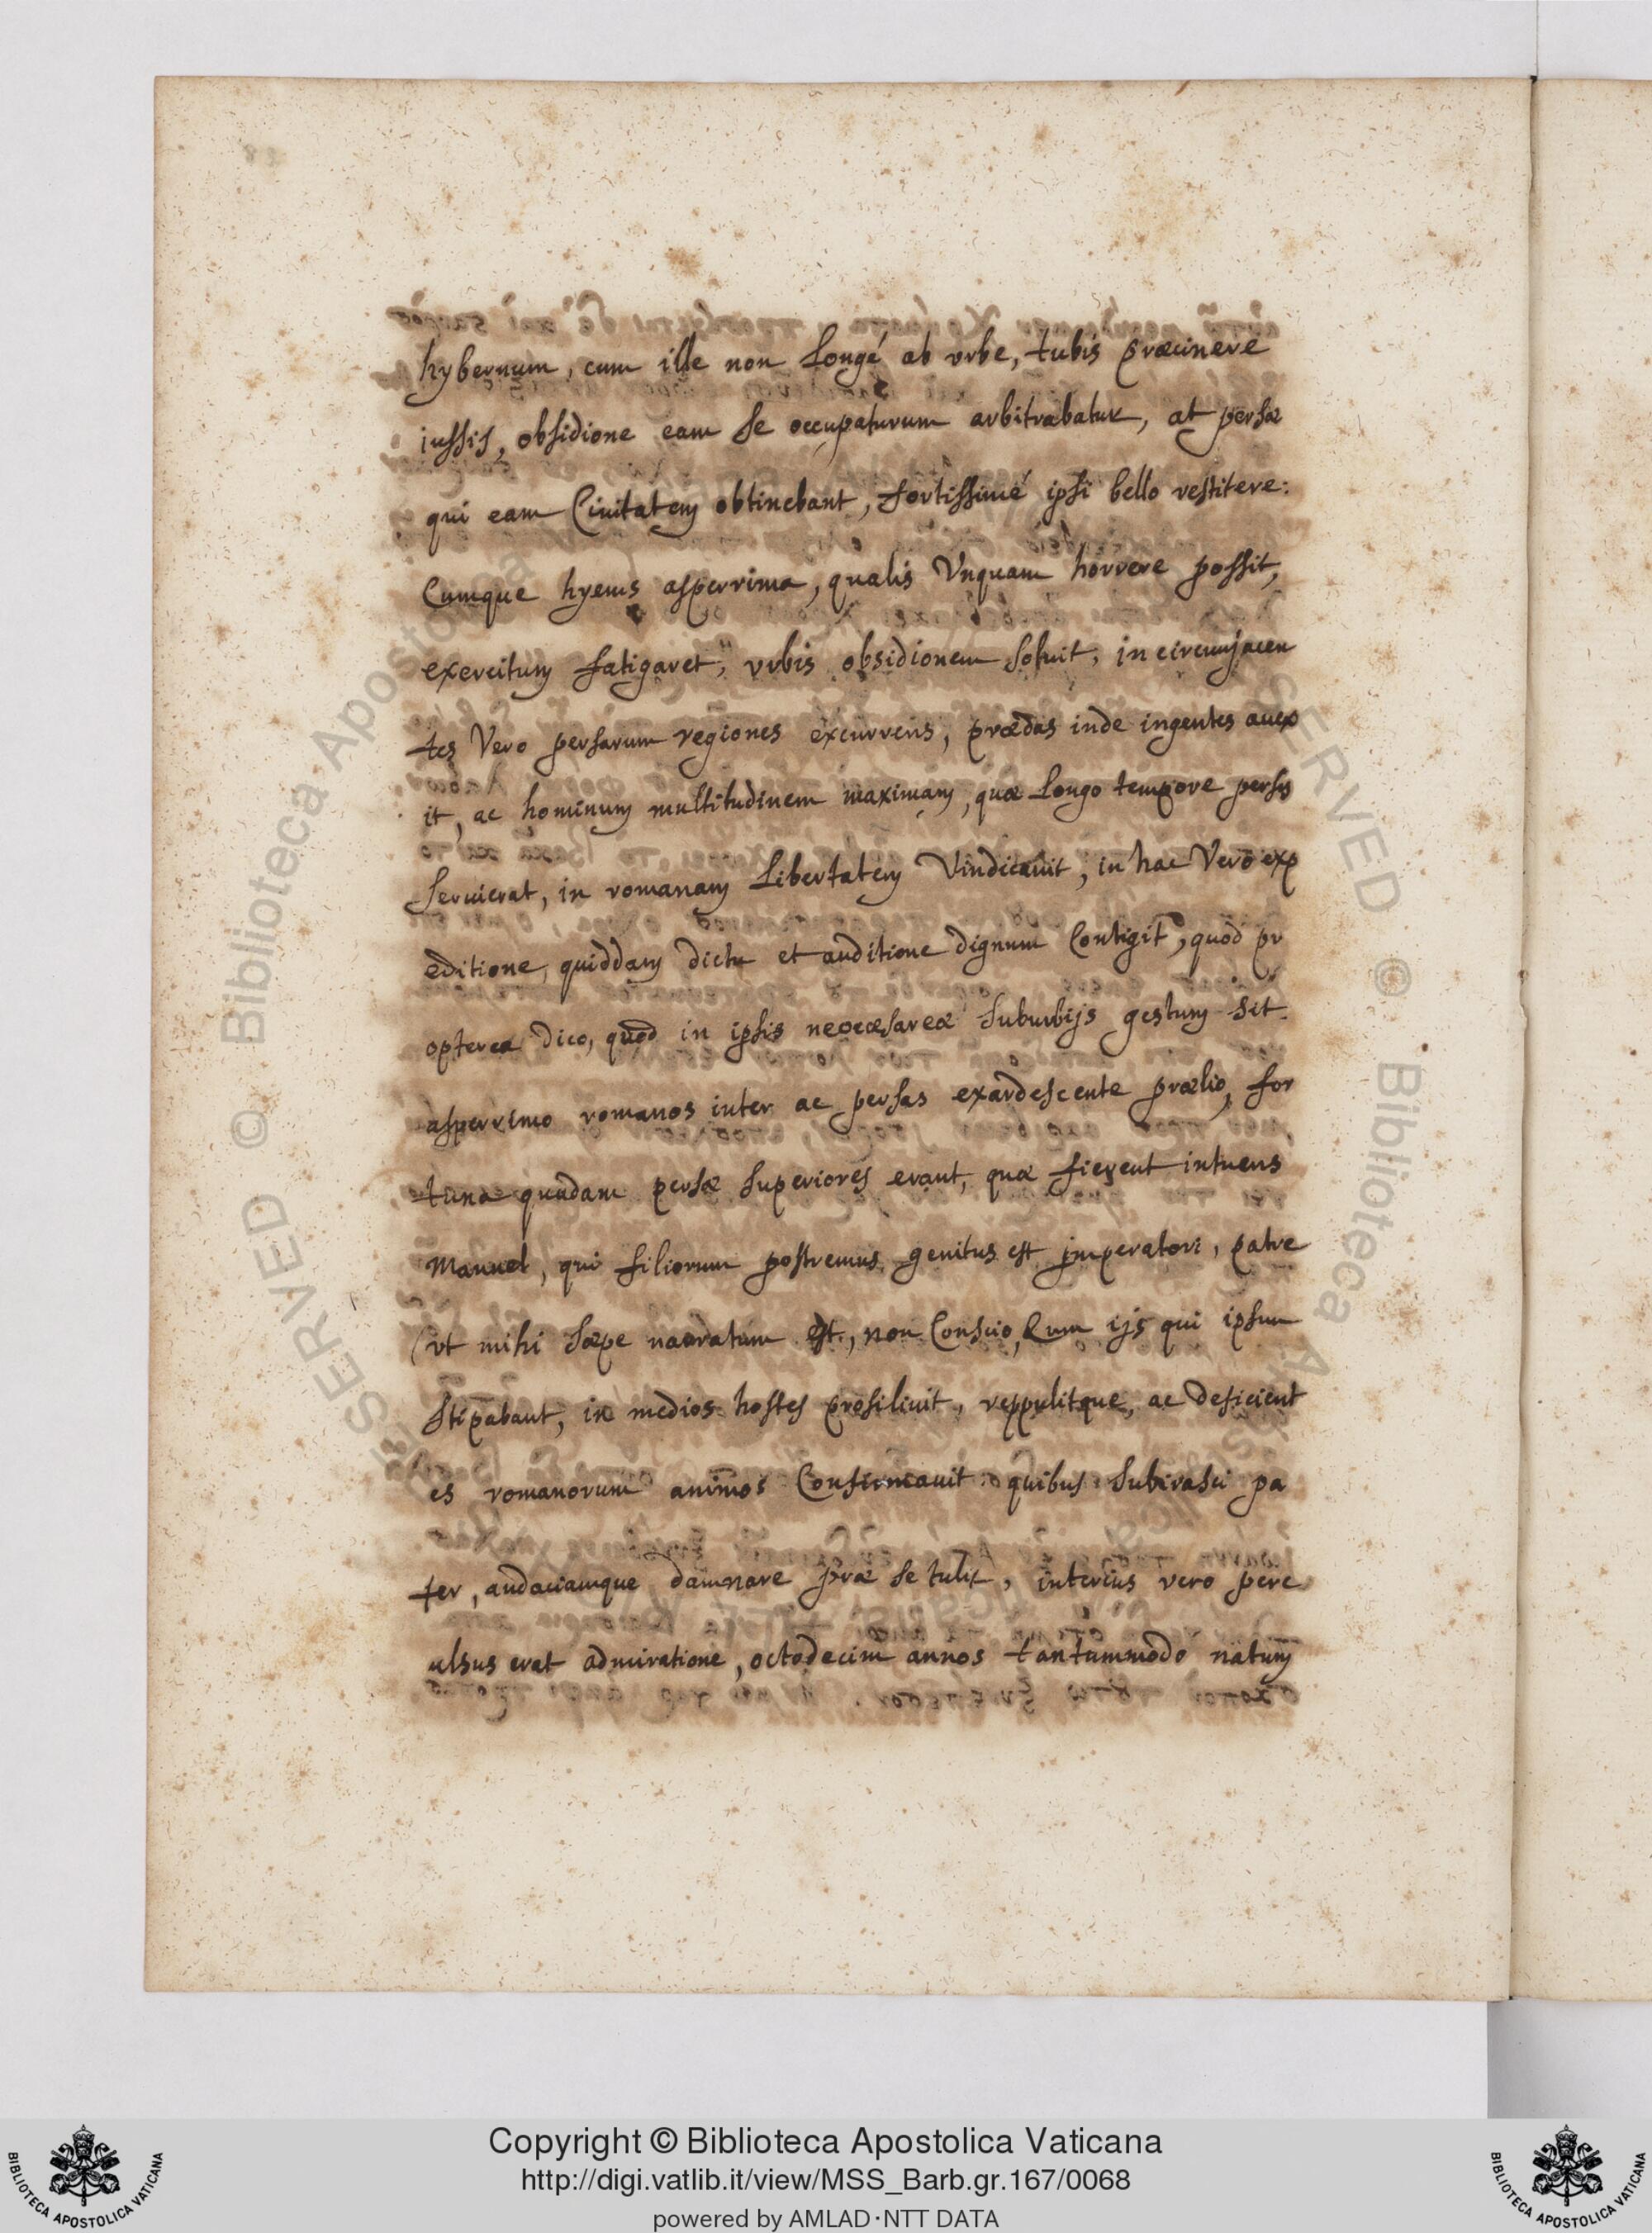 hybernum, cum ille non longé ab vrbe, tubis præcinere
iussis, obsidione eam se occupaturum arbitrabatur, at persæ
qui eam Ciuitatem obtinebant, fortissimé ipsi bello restitere:
Cumque hyems asperrima, qualis Vnquam horrere possit,
exercitum fatigaret, vrbis obsidionem soluit, in circumjacen
tes Vero persarum regiones excurrens, prædas inde ingentes auex
it, ac hominum multitudinem maximam, quæ longo tempore persis
seruierat, in romanam Libertatem Vindicauit, in hac Vero exp
editione, quiddam dictu et auditione dignum Contigit, quod pr
opterea dico, quod in ipsis neocæsareæ suburbijs gestum sit.
asperrimo romanos inter ac persas exardescente prælio, for
tuna quadam persæ superiores erant, quæ fierent intuens
Manuel, qui filiorum postremus genitus est jmperatori, patre
(vt mihi sæpe narratum est, non Conscio, Cum ijs qui ipsum
stipabant, in medios hostes prosiliuit, reppulitque, ac deficient
es romanorum animos Confirmauit quibus subirasci pa
ter, audaciamque damnare præ se tulit, interius vero perc
ulsus erat admiratione, octodecim annos tantummodo natum
Copyright © Biblioteca Apostolica Vaticana
http://digi.vatlib.it/view/MSS_Barb.gr.167/0068
powered by AMLAD·NTT DATA
BIBLIOTECA APOSTOLICA VATICANA
BIBLIOTECA APOSTOLICA VATICANA